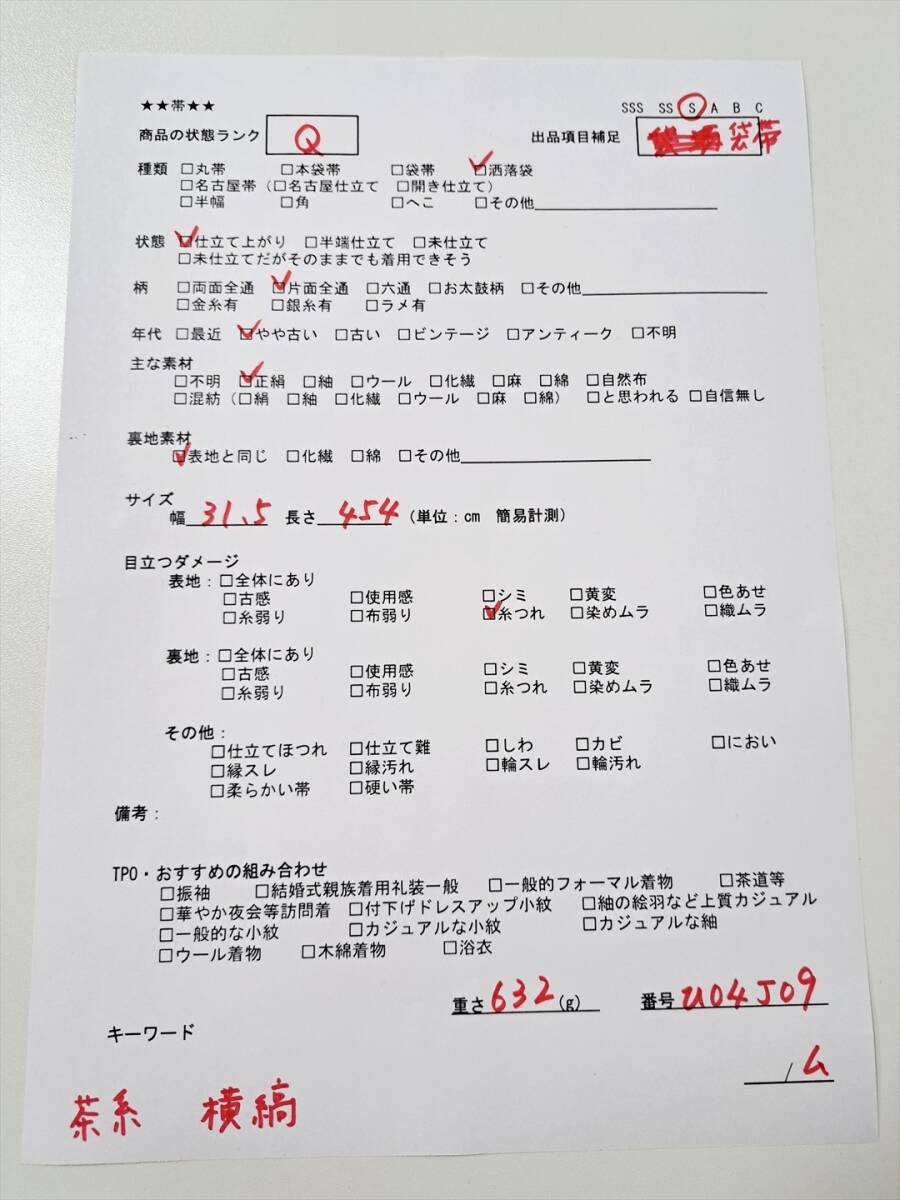 ★★帯★★
SSS SS S A B C
商品の状態ランク Q 出品項目補足 袋帯
種類 □丸帯 □本袋帯 □袋帯 □洒落袋
□名古屋帯（□名古屋仕立て □開き仕立て）
□半幅 □角 □へこ □その他
状態 □仕立て上がり □半端仕立て □未仕立て
□未仕立てだがそのままでも着用できそう
柄 □両面全通 □片面全通 □六通 □お太鼓柄 □その他
□金糸有 □銀糸有 □ラメ有
年代 □最近 □やや古い □古い □ビンテージ □アンティーク □不明
主な素材
□不明 □正絹 □紬 □ウール □化繊 □麻 □綿 □自然布
□混紡（□絹 □紬 □化繊 □ウール □麻 □綿） □と思われる □自信無し
裏地素材
□表地と同じ □化繊 □綿 □その他
サイズ
幅 31.5 長さ 454 （単位：cm 簡易計測）
目立つダメージ
表地：□全体にあり
□古感 □使用感 □シミ □黄変 □色あせ
□糸弱り □布弱り □糸つれ □染めムラ □織ムラ
裏地：□全体にあり
□古感 □使用感 □シミ □黄変 □色あせ
□糸弱り □布弱り □糸つれ □染めムラ □織ムラ
その他：
□仕立てほつれ □仕立て難 □しわ □カビ □におい
□縁スレ □縁汚れ □輪スレ □輪汚れ
□柔らかい帯 □硬い帯
備考：
TPO・おすすめの組み合わせ
□振袖 □結婚式親族着用礼装一般 □一般的フォーマル着物 □茶道等
□華やか夜会等訪問着 □付下げドレスアップ小紋 □紬の絵羽など上質カジュアル
□一般的な小紋 □カジュアルな小紋 □カジュアルな紬
□ウール着物 □木綿着物 □浴衣
重さ 632 (g) 番号 U04J09
キーワード
/ム
茶系 横縞